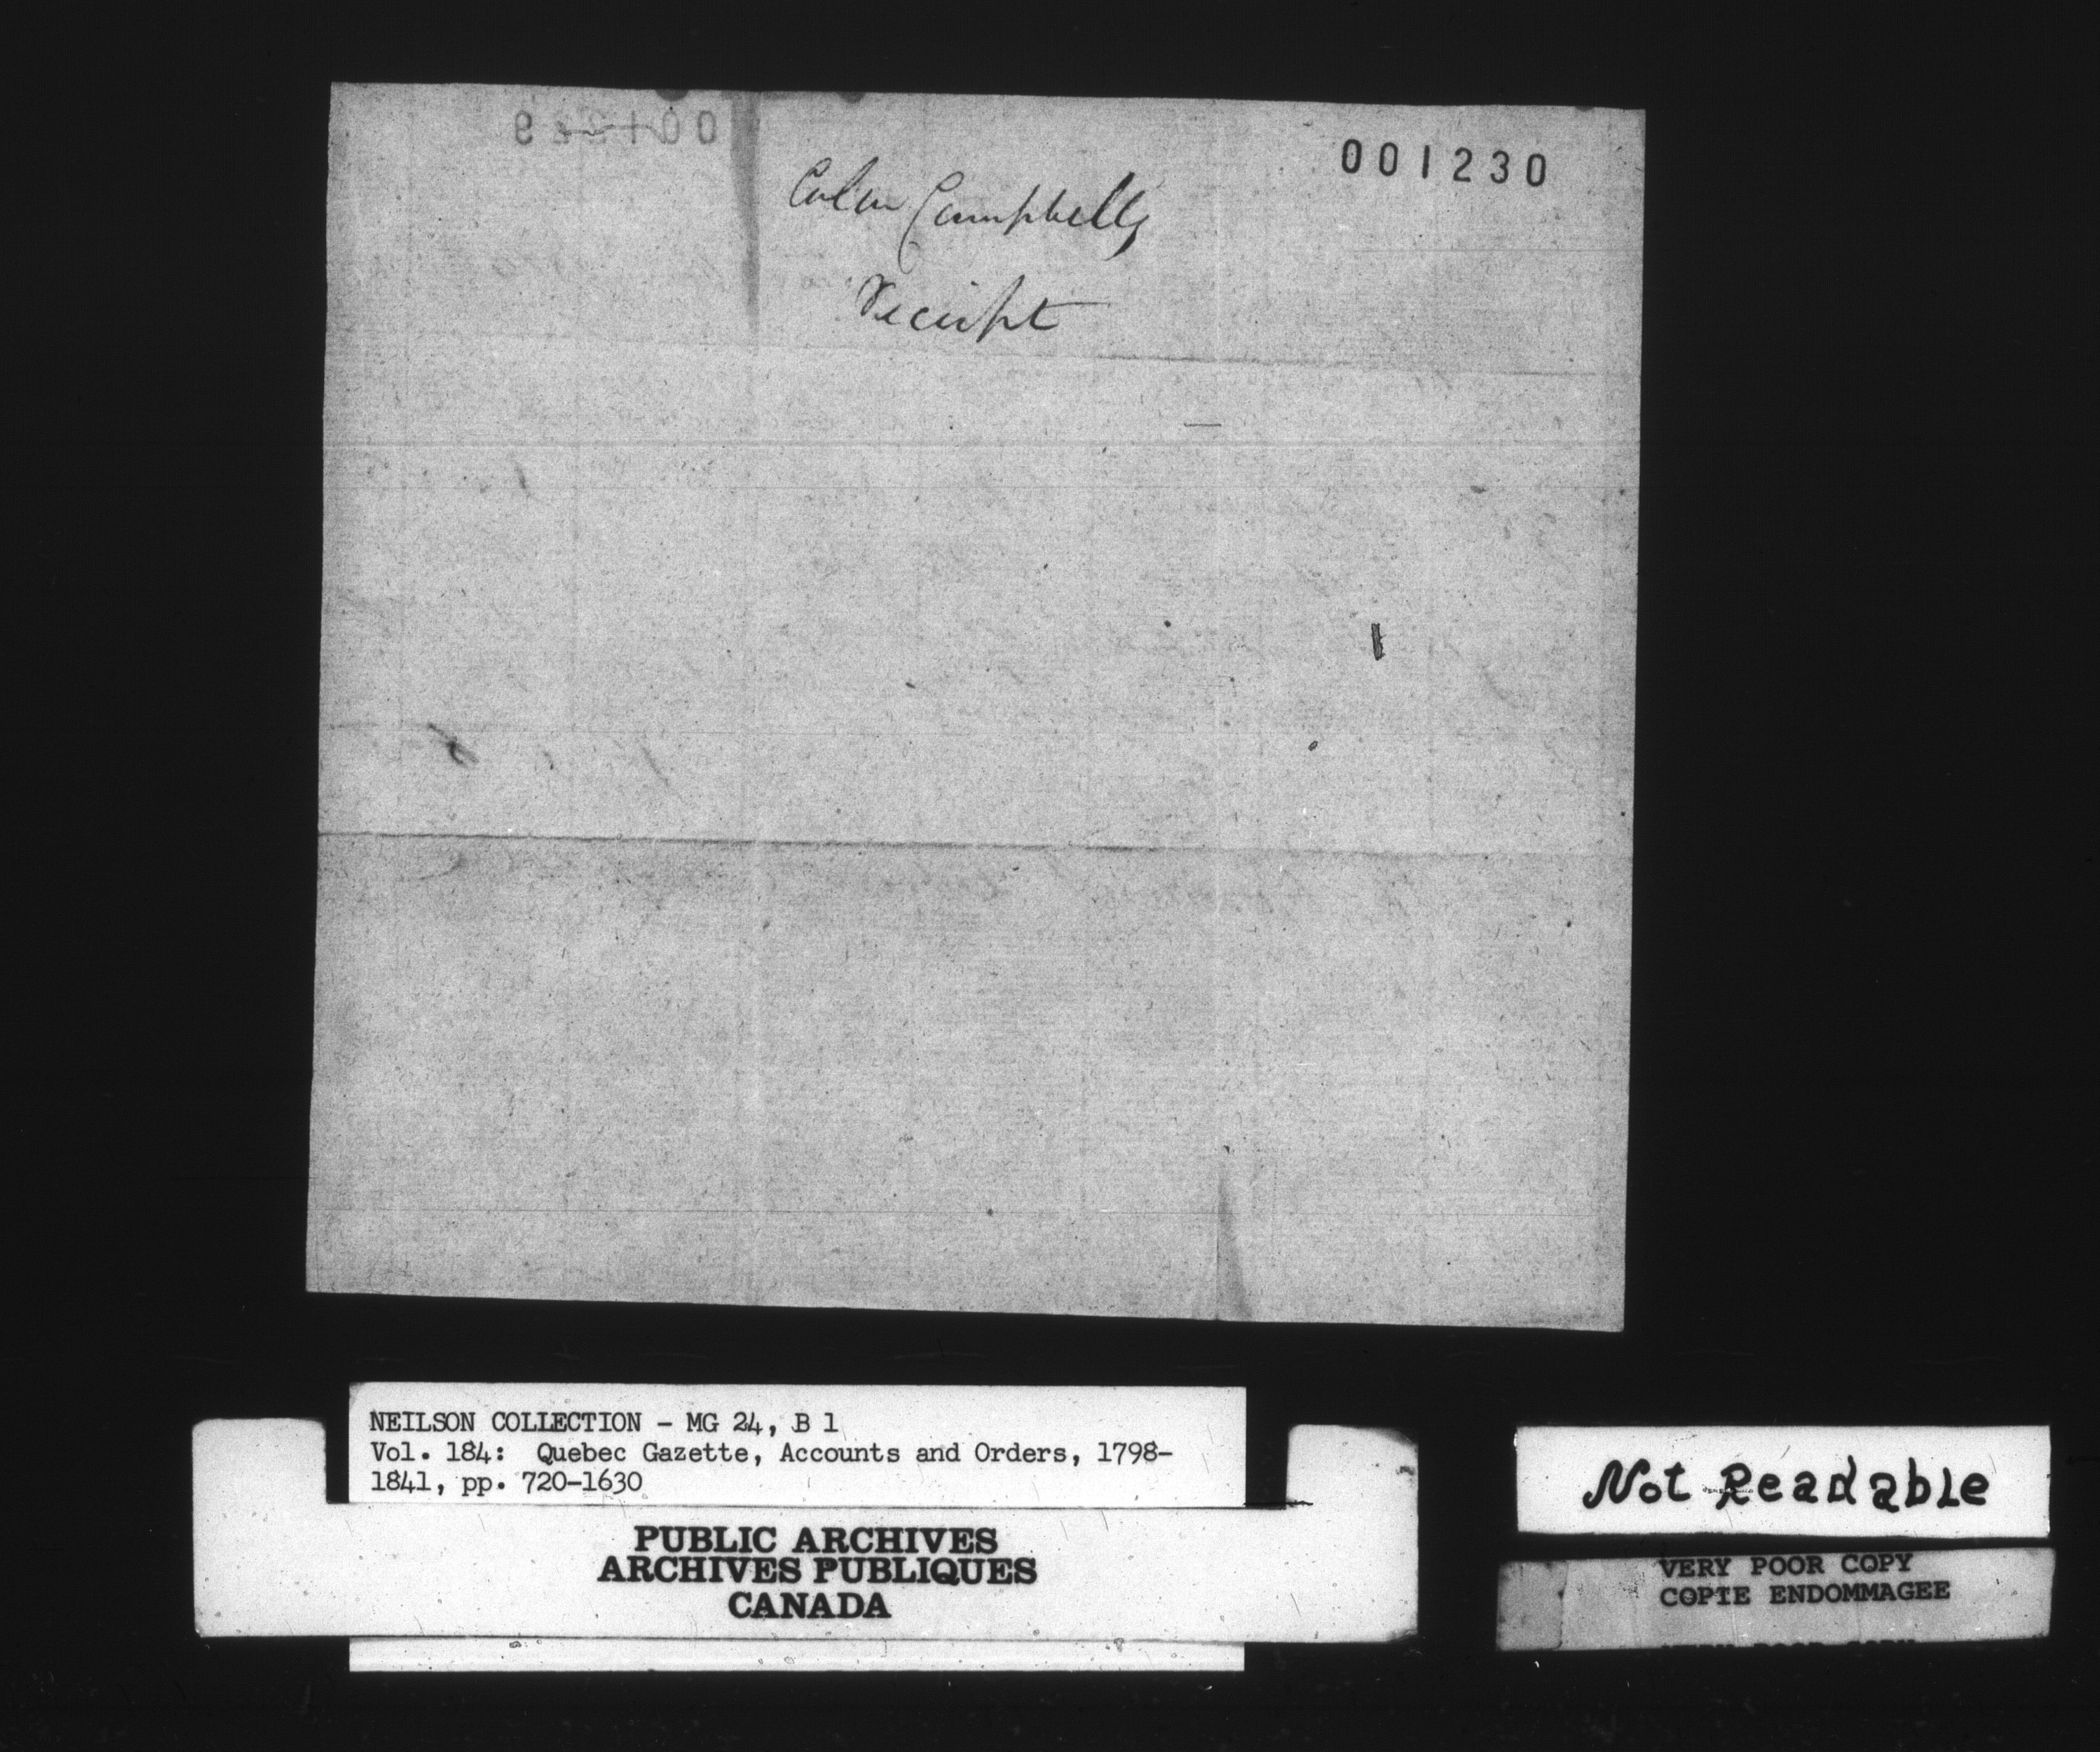 001229
001230
Colin Campbells
Receipt
NEILSON COLLECTION - MG 24, B 1
Vol. 184: Quebec Gazette, Accounts and Orders, 1798-
1841, pp. 720-1630
PUBLIC ARCHIVES
ARCHIVES PUBLIQUES
CANADA
Not Readable
VERY POOR COPY
COPIE ENDOMMAGEE